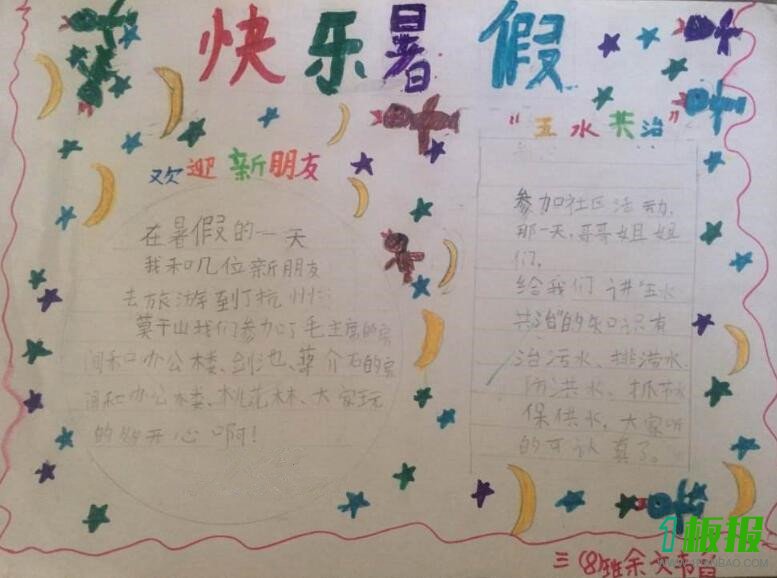 快乐暑假
欢迎新朋友
在暑假的一天
我和几位新朋友
去旅游来到了杭州
莫干山我们参加了毛主席的房
间和办公楼、剑池、蒋介石的房
间和办公楼、桃花林、大家玩
的好开心啊!
"五水共治"
参加社区活动,
那一天,哥哥姐姐
们,
给我们讲"五水
共治"的知识有
治污水、排涝水、
防洪水、抓节水
保供水,大家听
的可认真了。
三(8)班余文
1板报
WWW.1BANBAO.COM